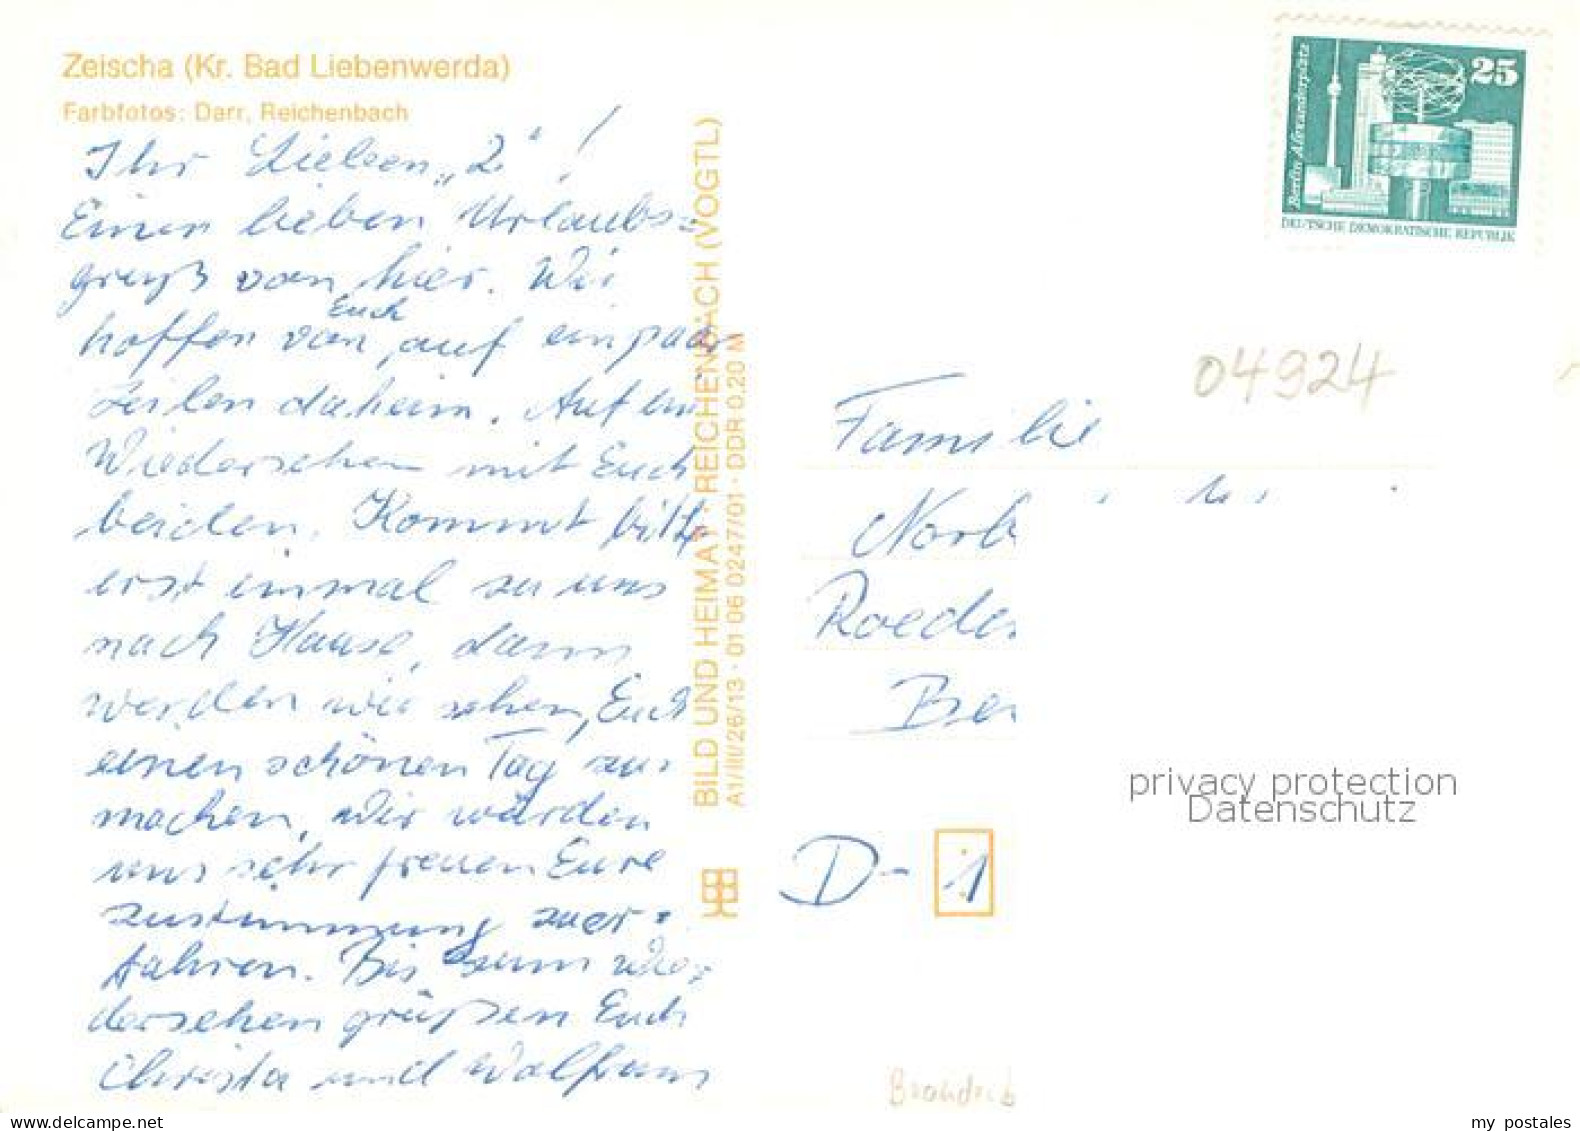 Zeischa (Kr. Bad Liebenwerda)
Farbfotos: Darr, Reichenbach
Ihr Lieben „2“!
Einen lieben Urlaubs=
gruß von hier. Wir
hoffen von Euch, auf ein paar
Zeilen daheim. Auf ein
Wiedersehen mit Euch
beiden. Kommt bitte
erst einmal zu uns
nach Hause, dann
werden wir sehen, Euch
einen schönen Tag zu
machen, Wir würden
uns sehr freuen Eure
Zustimmung zu er=
fahren. Bis zum Wie=
dersehen grüßen Euch
Christa und Wolfram
BILD UND HEIMAT · REICHENBACH (VOGTL)
A1/III/26/13 · 01 06 0247/01 · DDR 0,20 M
Berlin Alexanderplatz
25
DEUTSCHE DEMOKRATISCHE REPUBLIK
04924
Familie
Norb
Roeder
Ber
D-1
privacy protection
Datenschutz
my postales